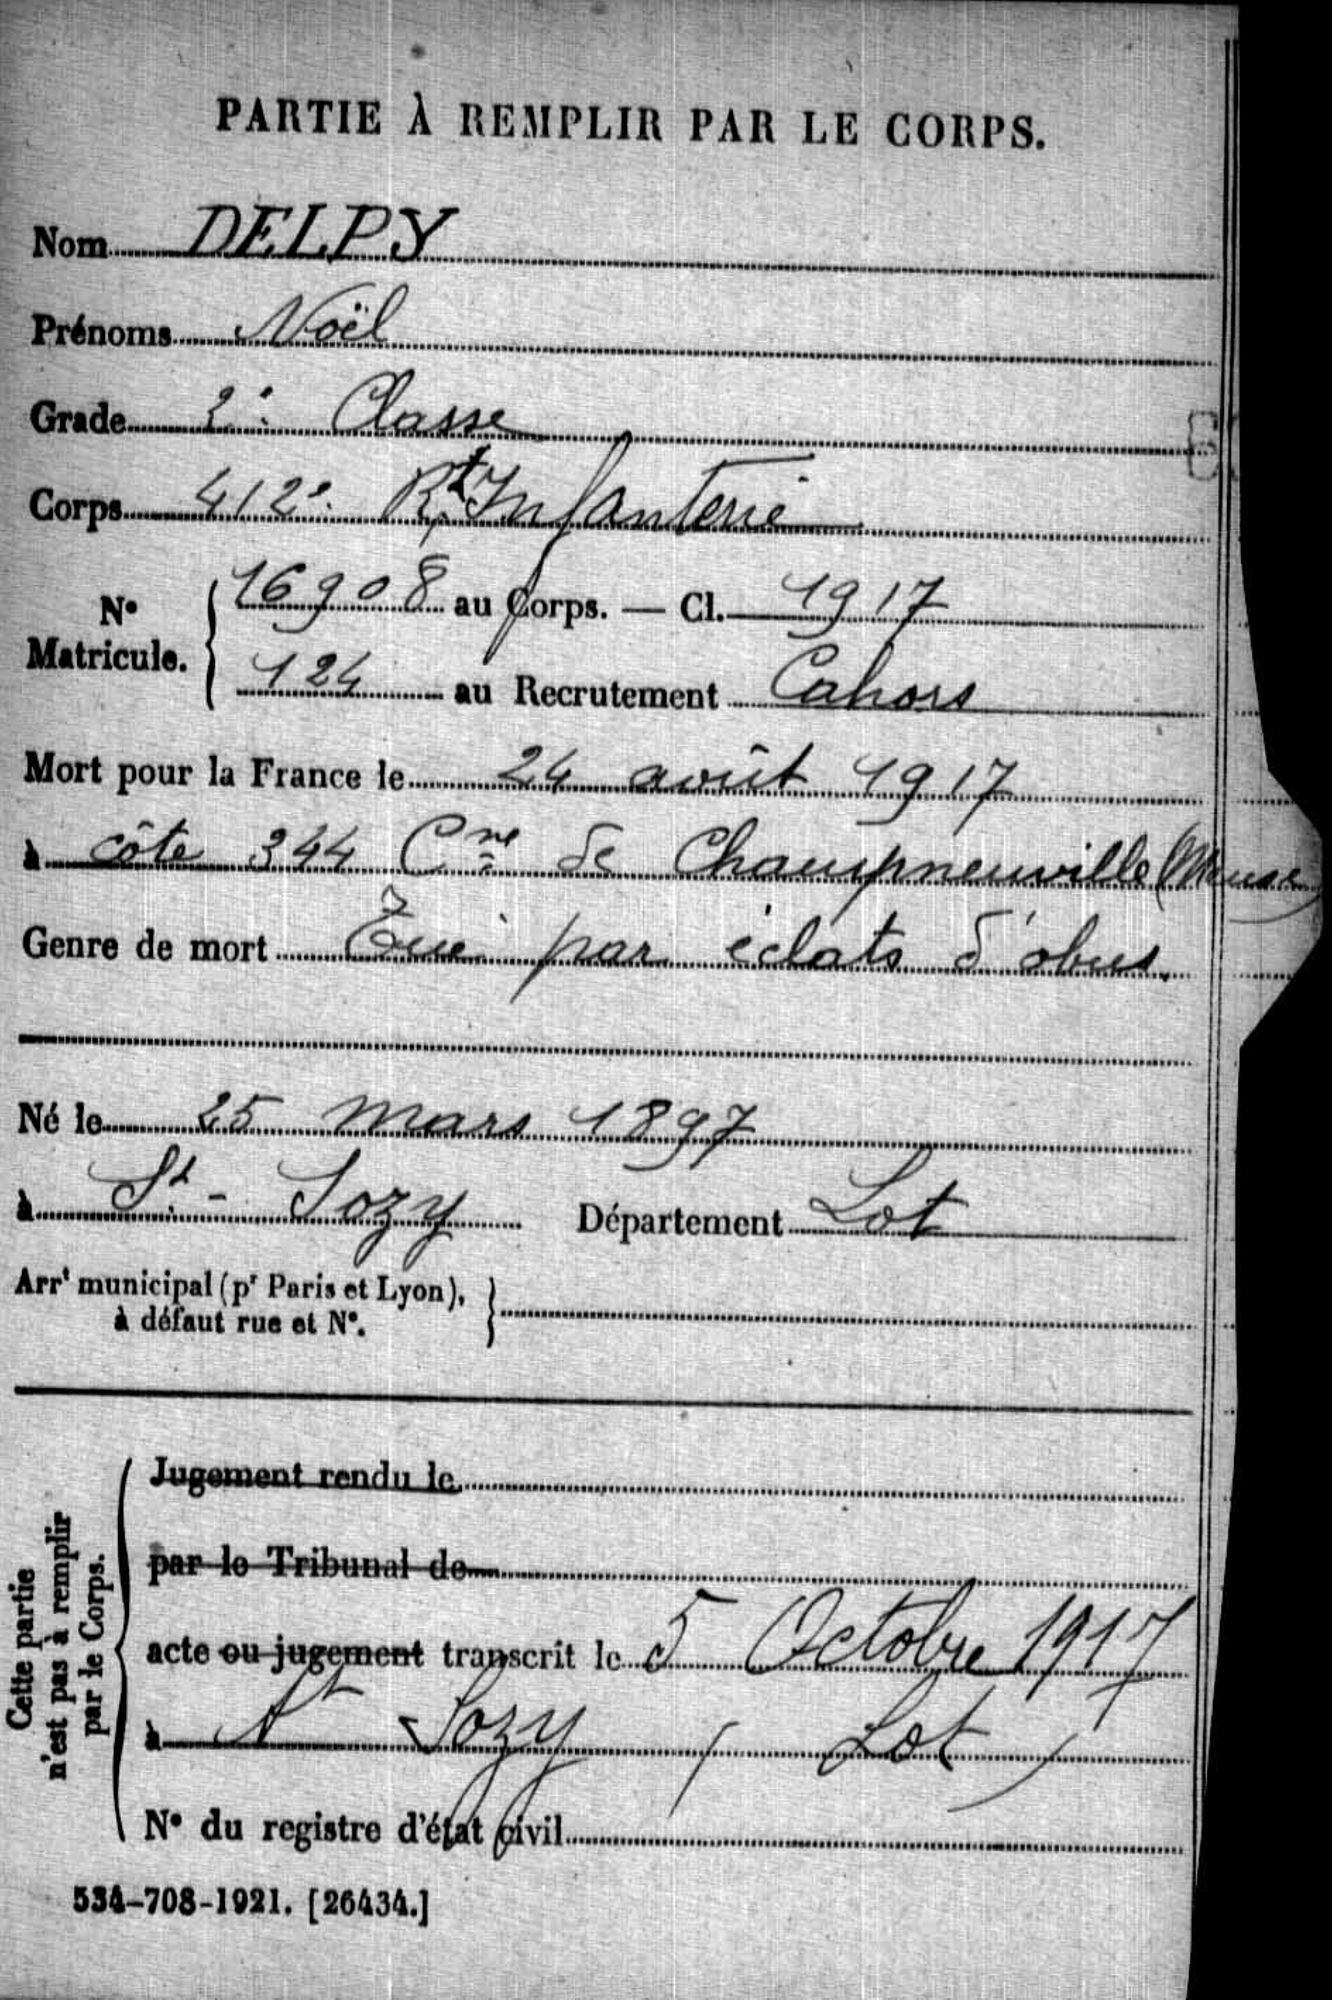 PARTIE À REMPLIR PAR LE CORPS.
Nom DELPY
Prénoms Noël
Grade 2e Classe
Corps 412e Rt Infanterie
No Matricule. { 16908 au Corps. — Cl. 1917
124 au Recrutement Cahors
Mort pour la France le 24 août 1917
à côte 344 Cne de Champneuville (Meuse)
Genre de mort Tué par éclats d'obus.
Né le 25 mars 1897
à St-Sozy Département Lot
Arrt municipal (pr Paris et Lyon), }
à défaut rue et No.
Cette partie
n'est pas à remplir
par le Corps.
Jugement rendu le
par le Tribunal de
acte ou jugement transcrit le 5 Octobre 1917
à St Sozy (Lot)
No du registre d'état civil
534-708-1921. [26434.]